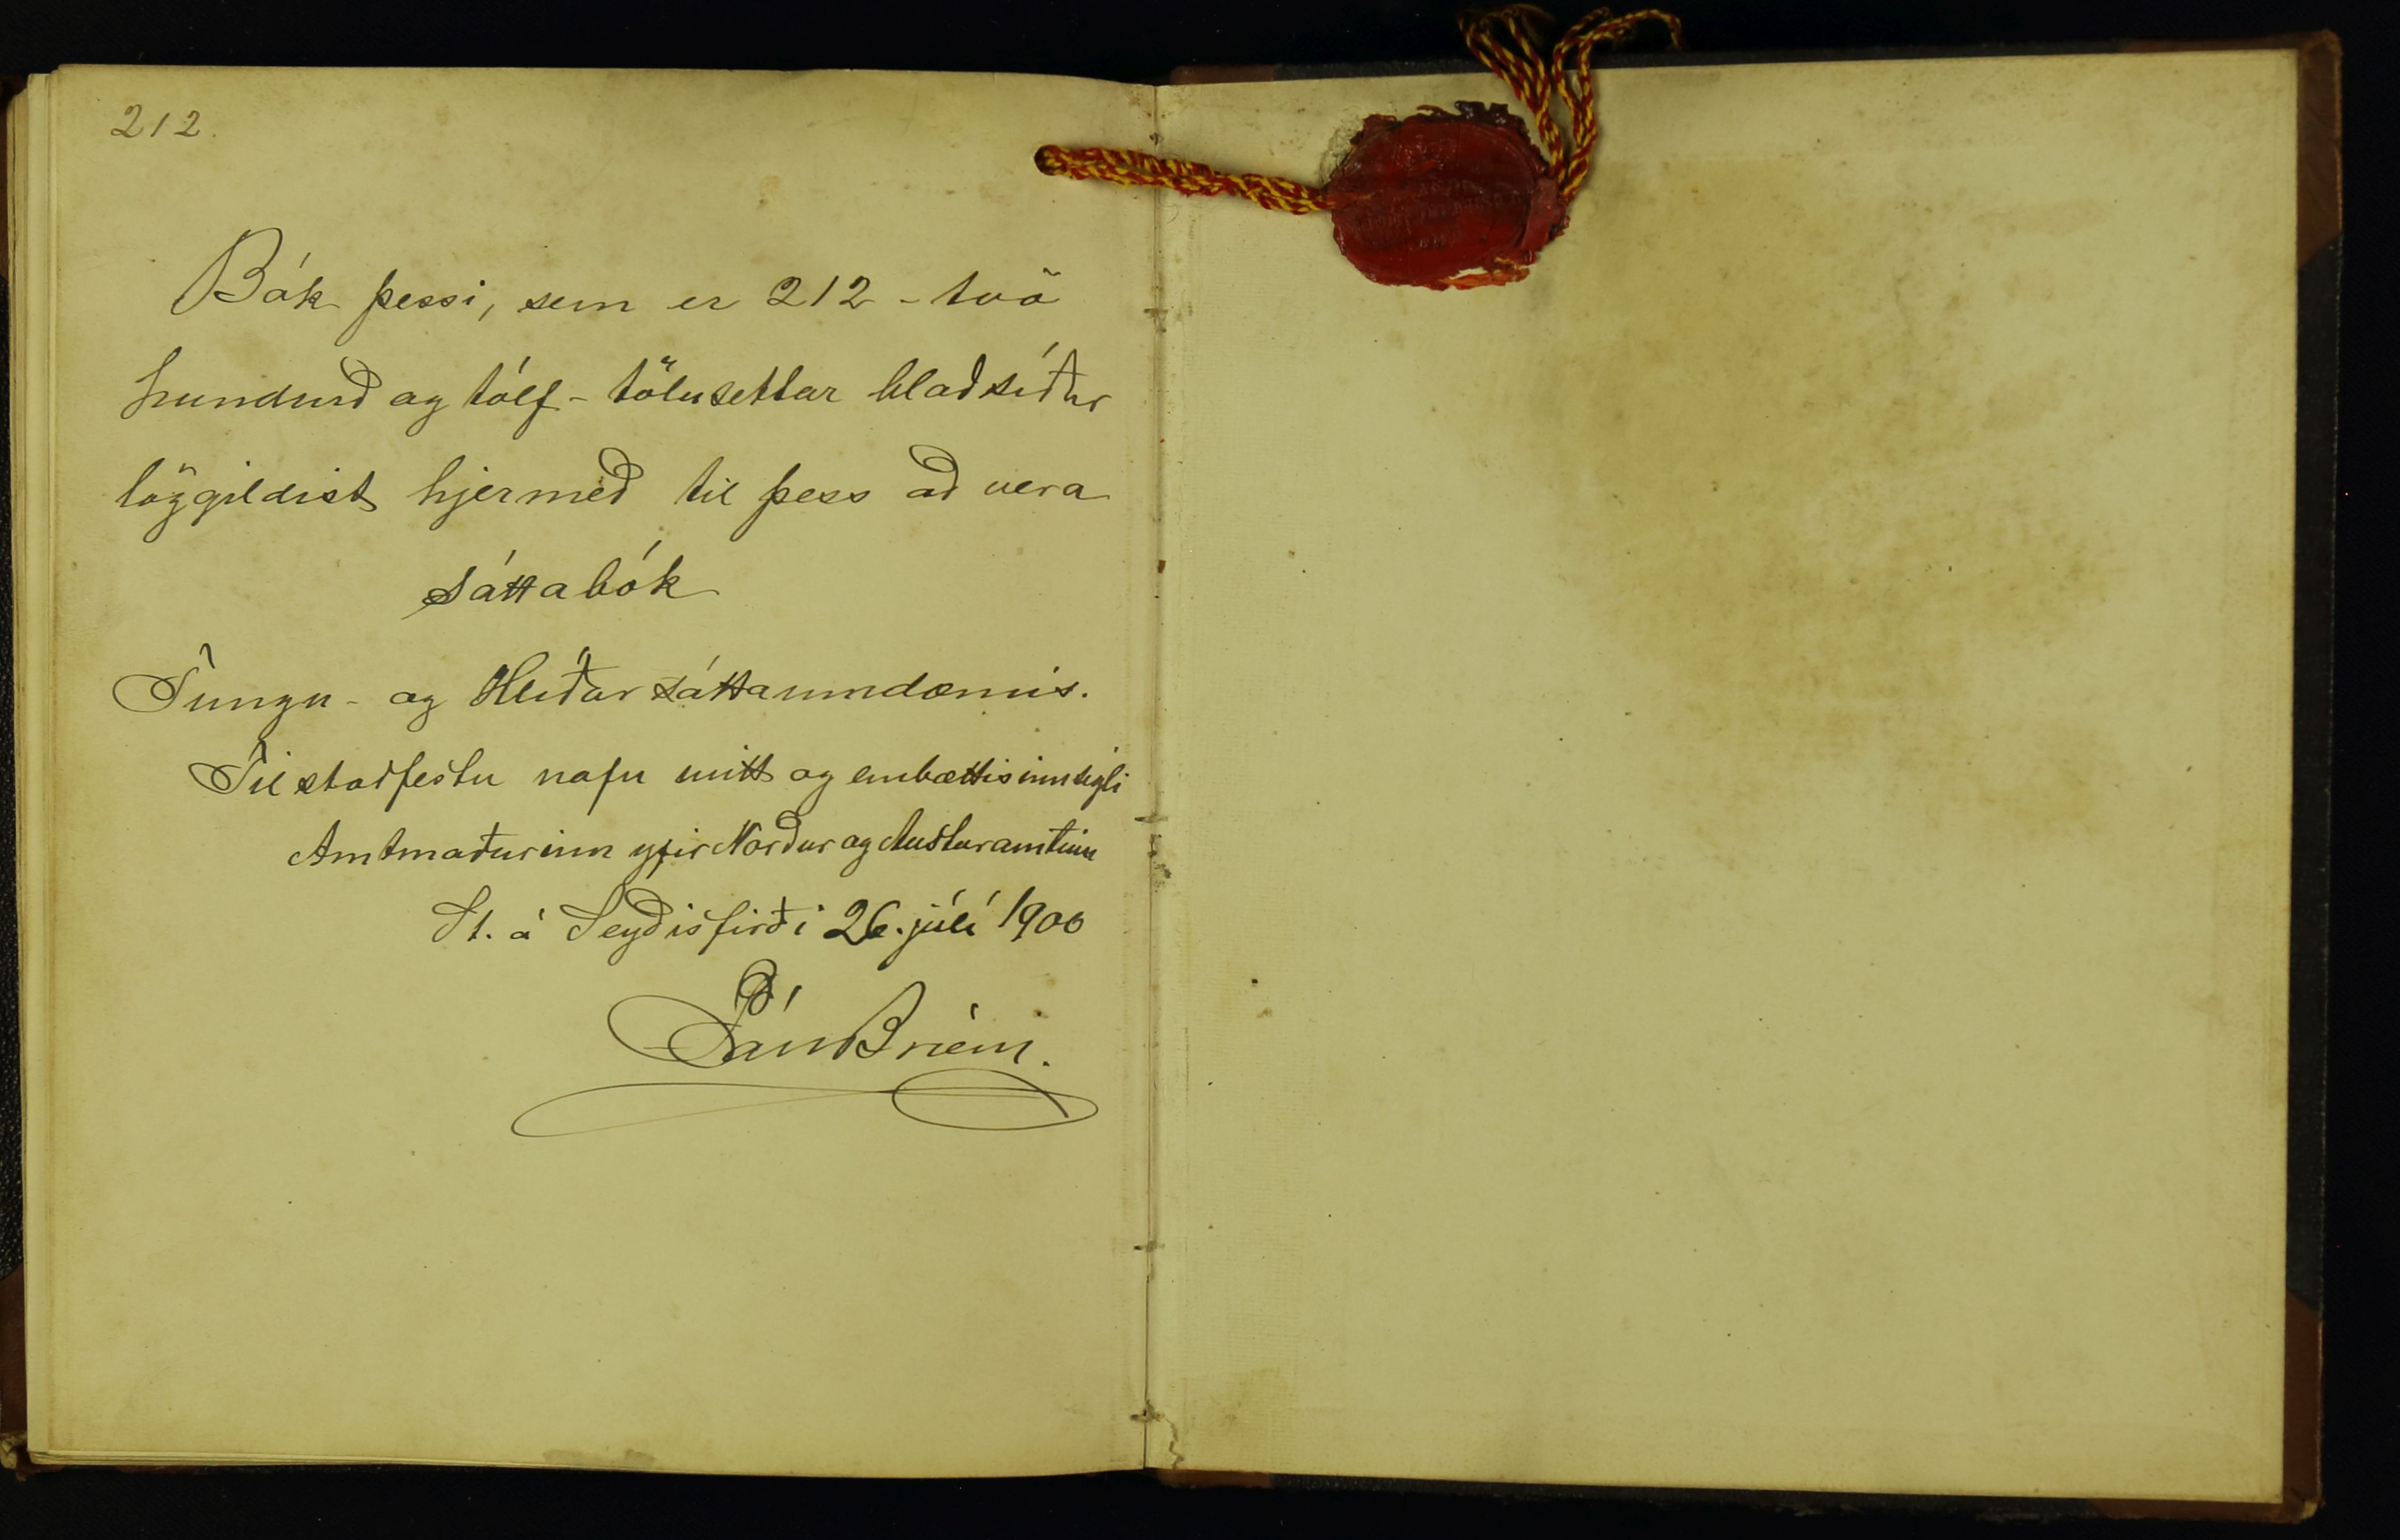 212.
Bók þessi, sem er 212 - tvö
hundruð og tólf - tölusettar blaðsíður
löggildist hjermeð til þess að vera
sáttabók
Tungu- og Hlíðar sáttaumdæmis.
Til staðfestu nafn mitt og embættisinnsigli
Amtmaðurinn yfir Norður og Austuramtinu
St. á Seyðisfirði 26. júlí 1900
Páll Briem.